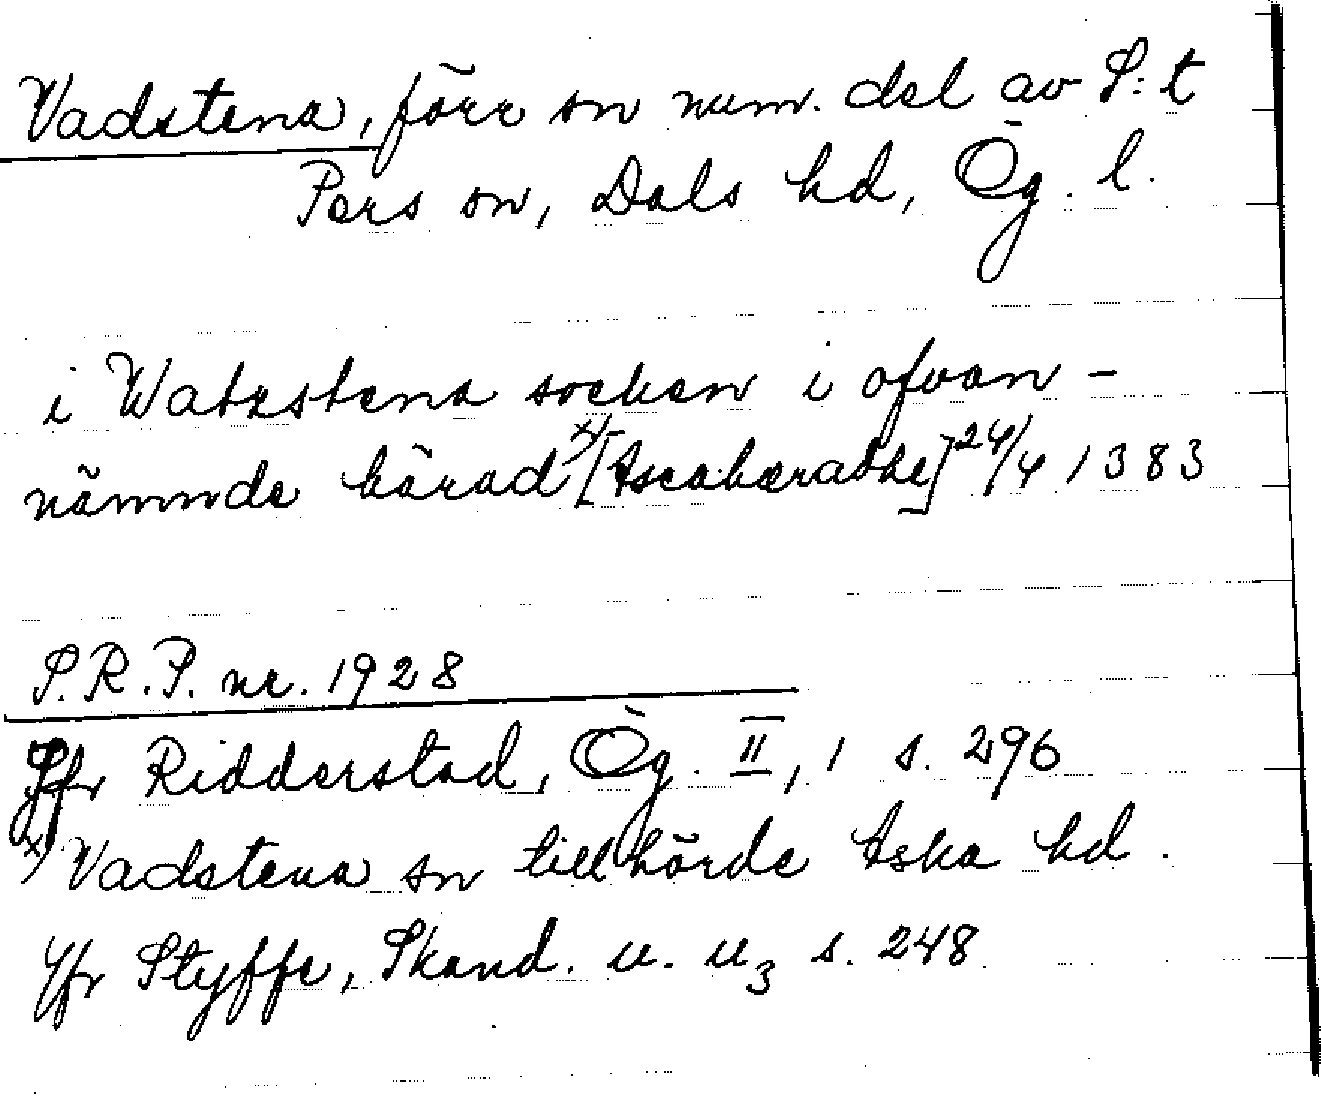 Vadstena, förr sn num. del av S:t
Pers sn, Dals hd, Ög. l.
i Watzstena socken i ofvan-
nämnde härad x) [Ascahæradhe] 24/4 1383
S.R.P. nr. 1928
Jfr Ridderstad, Ög. II, 1 s. 296
x) Vadstena sn tillhörde Aska hd.
Jfr Styffe, Skand. u. u3 s. 248